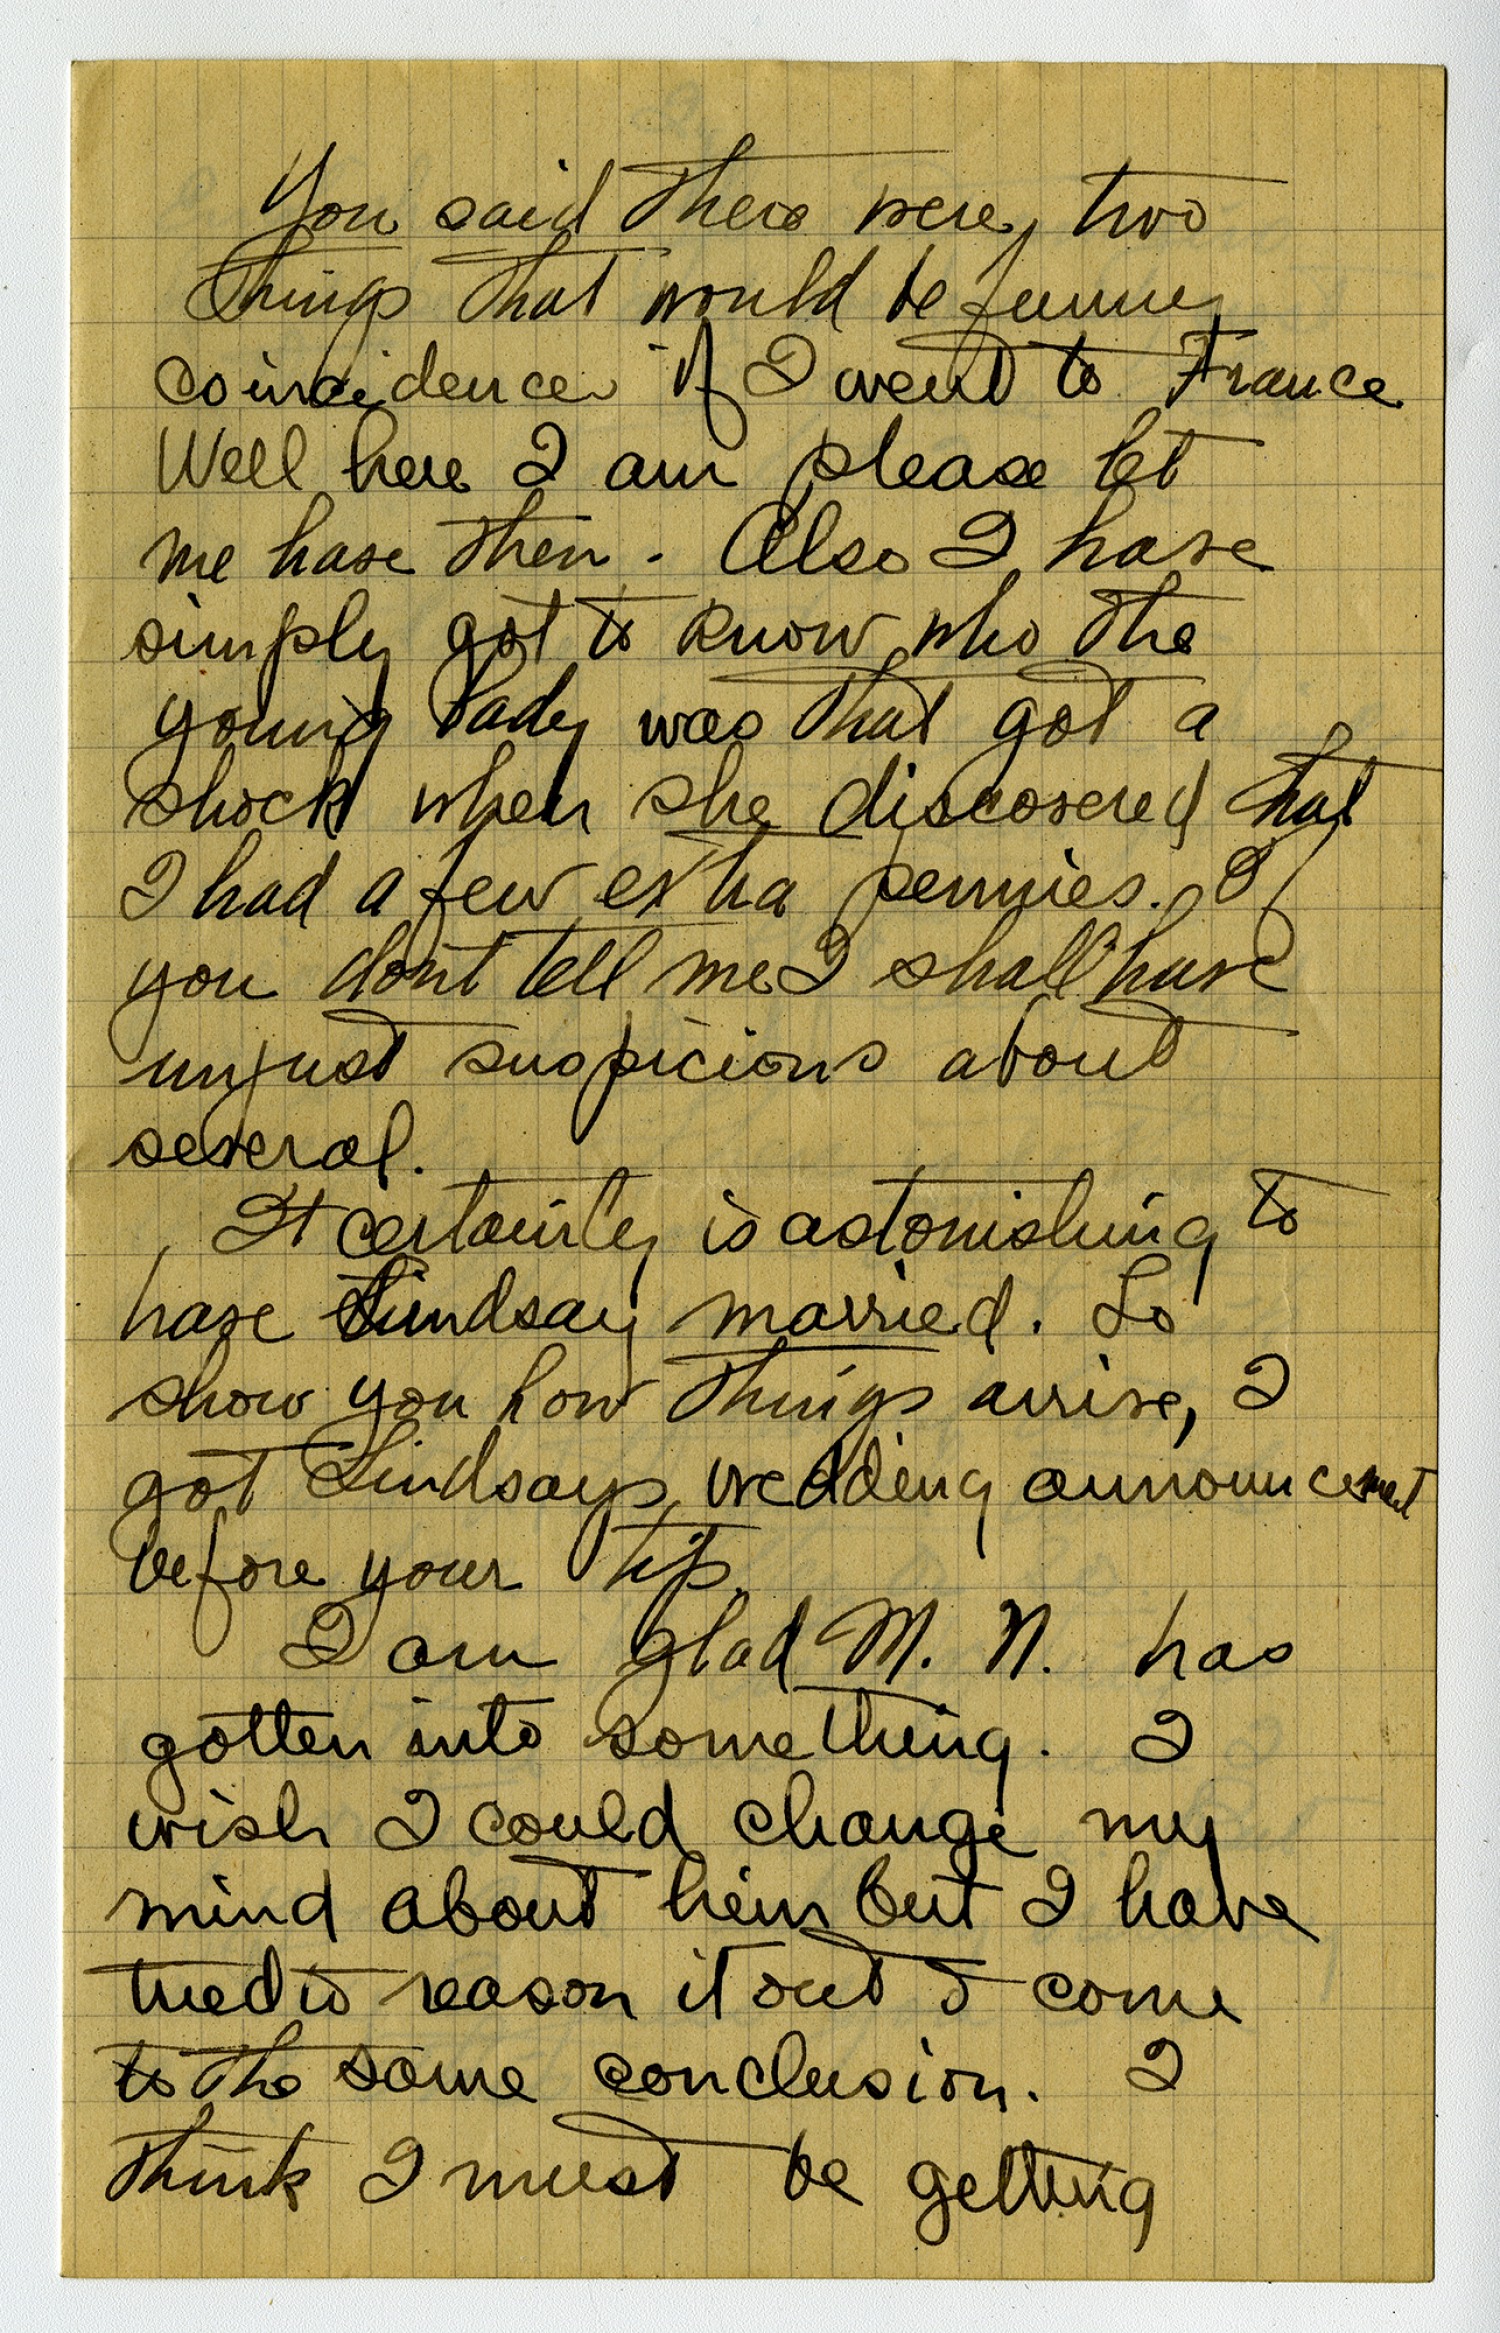 You said there were two
things that would be funny
coincidences if I went to France
Well here I am please let
me have then. Also I have
simply got to know who the
young lady was that got a
shock when she discovered that
I had a few extra pennies. If
you don't tell me I shall have
unjust suspicions about
several.
It certainly is astonishing to
have Lindsay married. To
show you how things arrive, I
got Lindsays wedding announcement
before your tip.
I am glad M. N. has
gotten into something. I
wish I could change my
mind about him but I have
tried to reason it out & come
to the same conclusion. I
think I must be getting